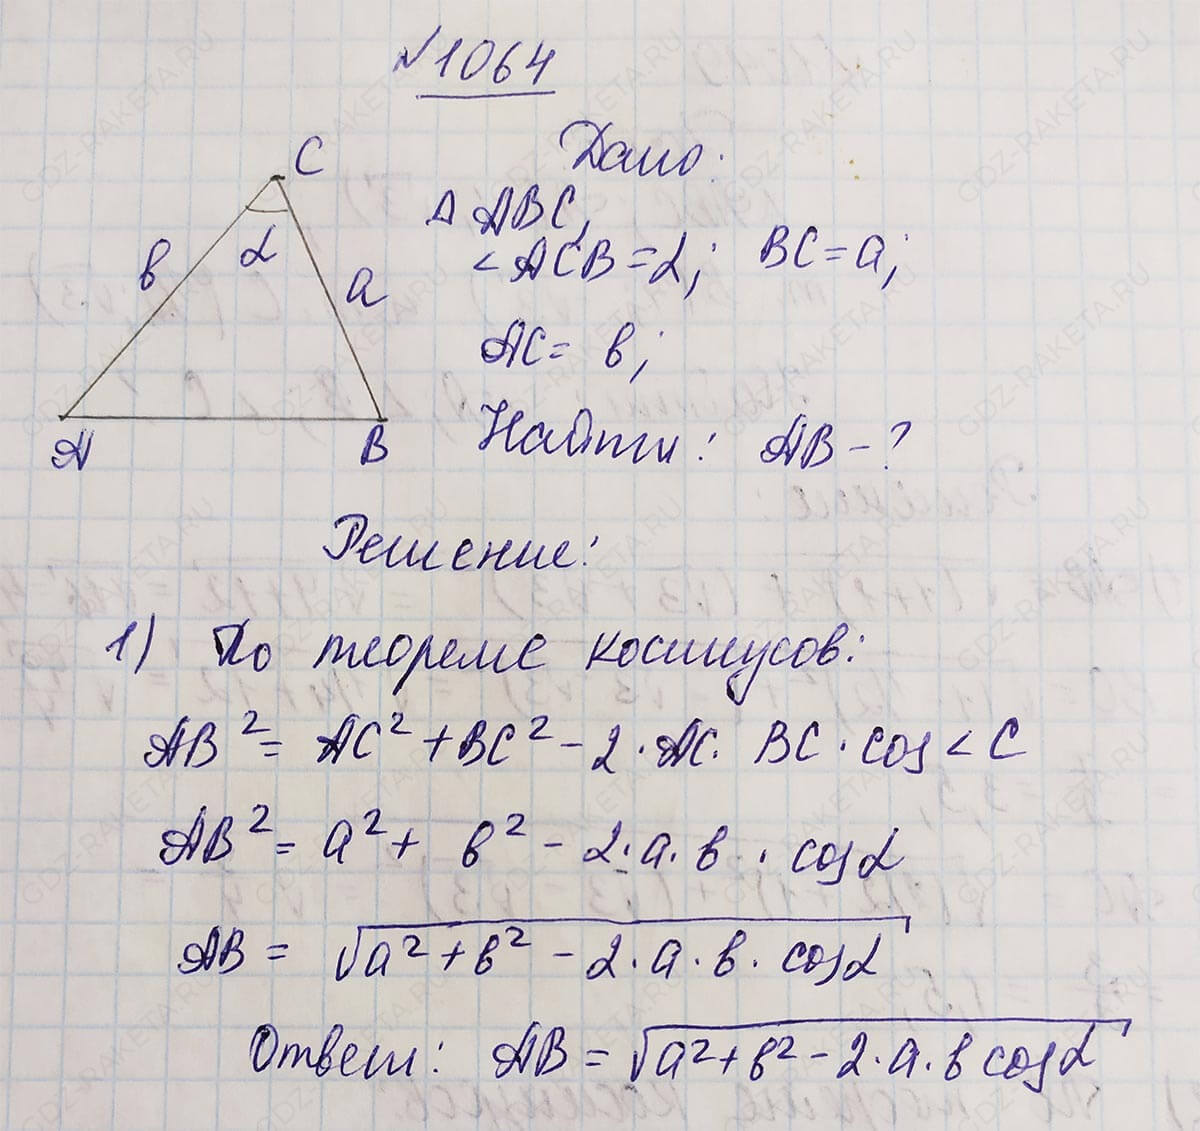 №1064
C
Дано:
△ ABC,
b
α
a
∠ACB = α; BC = a;
AC = b;
A
B
Найти: AB - ?
Решение:
1) По теореме косинусов:
AB² = AC² + BC² - 2 · AC · BC · cos ∠C
AB² = a² + b² - 2 · a · b · cos α
AB = √(a² + b² - 2 · a · b · cos α)
Ответ: AB = √(a² + b² - 2 · a · b cos α)
GDZ-RAKETA.RU